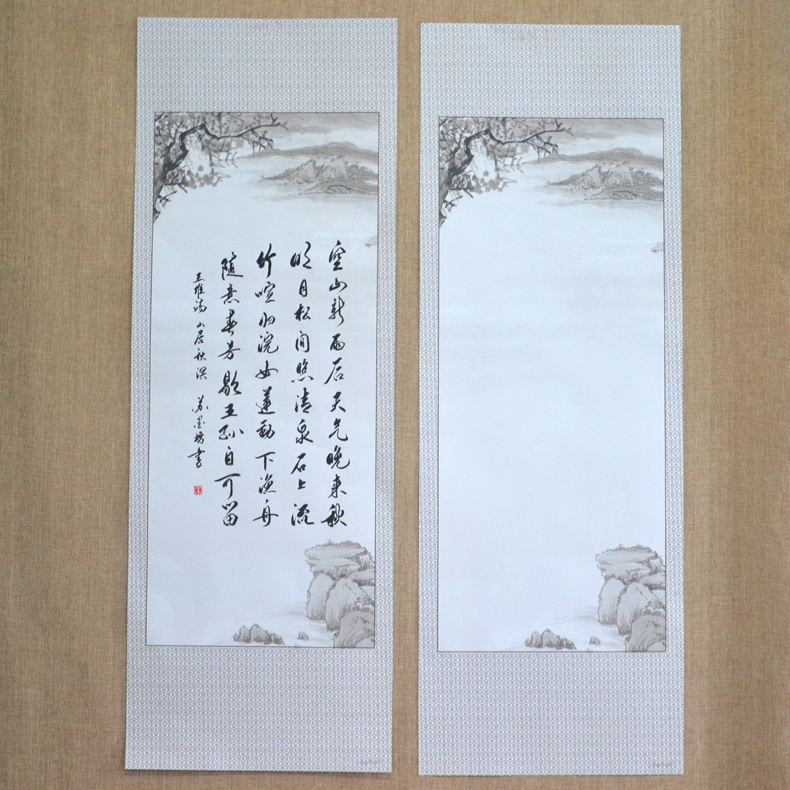 空山新雨后天气晚来秋
明月松间照清泉石上流
竹喧归浣女莲动下渔舟
随意春芳歇王孙自可留
王维诗山居秋溟苏墨坊书